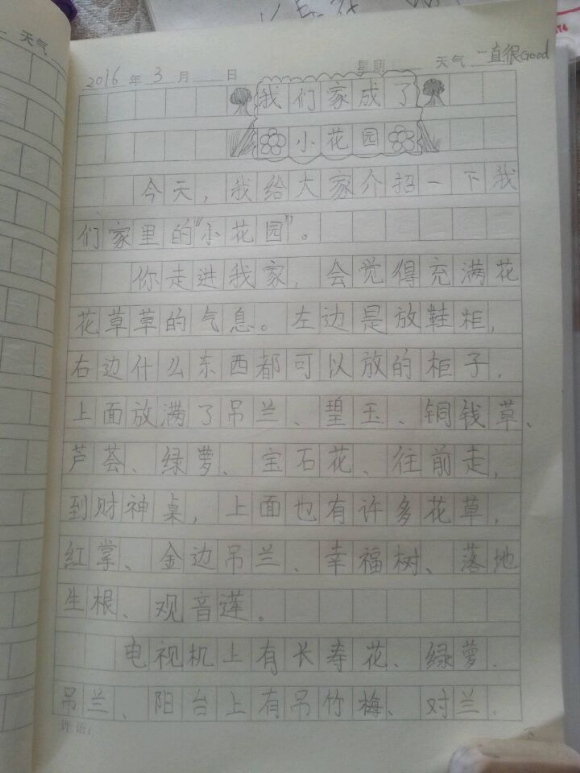 天气
2016年3月 日 星期 天气 一直很Good
我们家成了
小花园
今天，我给大家介绍一下我
们家里的"小花园"。
你走进我家，会觉得充满花
花草草的气息。左边是放鞋柜，
右边什么东西都可以放的柜子，
上面放满了吊兰、碧玉、铜钱草、
芦荟、绿萝、宝石花、往前走，
到财神桌，上面也有许多花草，
红掌、金边吊兰、幸福树、落地
生根、观音莲。
电视机上有长寿花、绿萝、
吊兰、阳台上有吊竹梅、对兰、